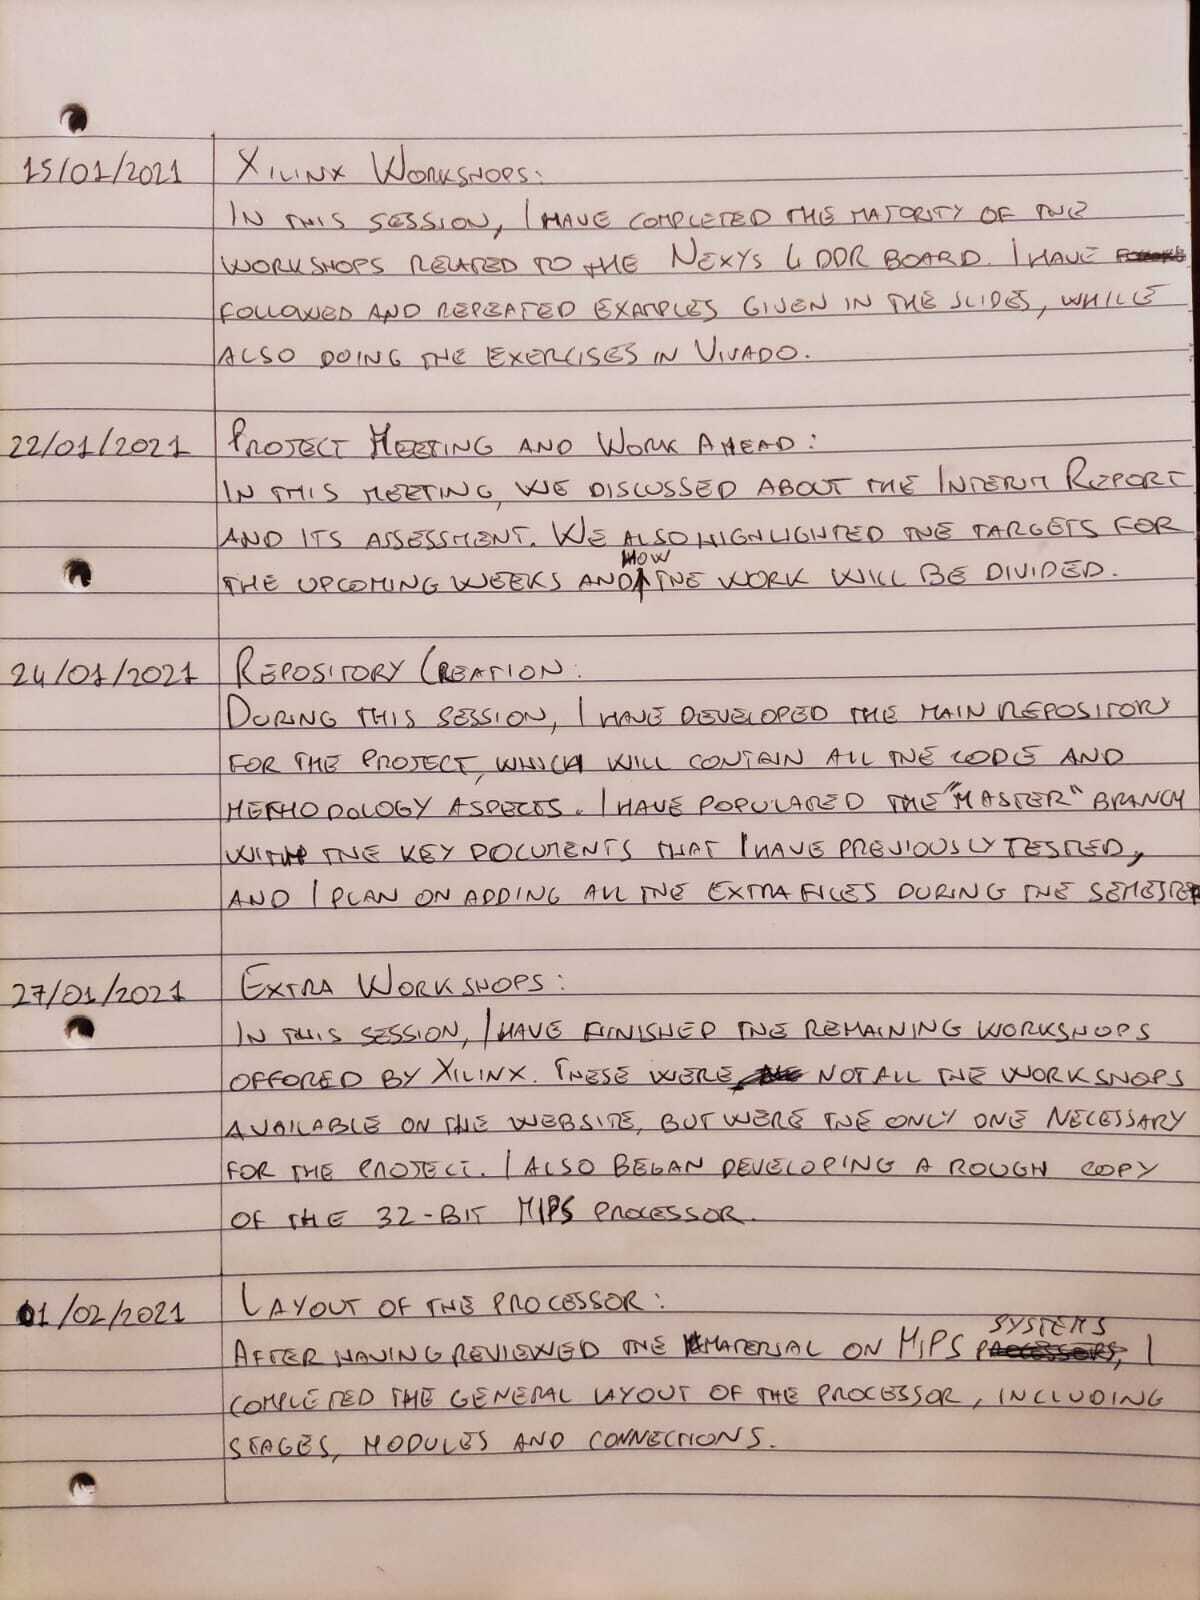 15/01/2021 XILINX WORKSHOPS:
IN THIS SESSION, I HAVE COMPLETED THE MAJORITY OF THE
WORKSHOPS RELATED TO THE NEXYS 4 DDR BOARD. I HAVE
FOLLOWED AND REPEATED EXAMPLES GIVEN IN THE SLIDES, WHILE
ALSO DOING THE EXERCISES IN VIVADO.
22/01/2021 PROJECT MEETING AND WORK AHEAD:
IN THIS MEETING, WE DISCUSSED ABOUT THE INTERIM REPORT
AND ITS ASSESSMENT. WE ALSO HIGHLIGHTED THE TARGETS FOR
THE UPCOMING WEEKS AND HOW THE WORK WILL BE DIVIDED.
24/01/2021 REPOSITORY CREATION:
DURING THIS SESSION, I HAVE DEVELOPED THE MAIN REPOSITORY
FOR THE PROJECT, WHICH WILL CONTAIN ALL THE CODE AND
METHODOLOGY ASPECTS. I HAVE POPULATED THE "MASTER" BRANCH
WITH THE KEY DOCUMENTS THAT I HAVE PREVIOUSLY TESTED,
AND I PLAN ON ADDING ALL THE EXTRA FILES DURING THE SEMESTER
27/01/2021 EXTRA WORKSHOPS:
IN THIS SESSION, I HAVE FINISHED THE REMAINING WORKSHOPS
OFFORED BY XILINX. THESE WERE NOT ALL THE WORKSHOPS
AVAILABLE ON THE WEBSITE, BUT WERE THE ONLY ONE NECESSARY
FOR THE PROJECT. I ALSO BEGAN DEVELOPING A ROUGH COPY
OF THE 32-BIT MIPS PROCESSOR.
01/02/2021 LAYOUT OF THE PROCESSOR:
AFTER HAVING REVIEWED THE MATERIAL ON MIPS SYSTEMS, I
COMPLETED THE GENERAL LAYOUT OF THE PROCESSOR, INCLUDING
STAGES, MODULES AND CONNECTIONS.